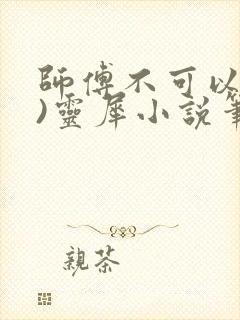 師傅不可以
)靈犀小說筆
親茶